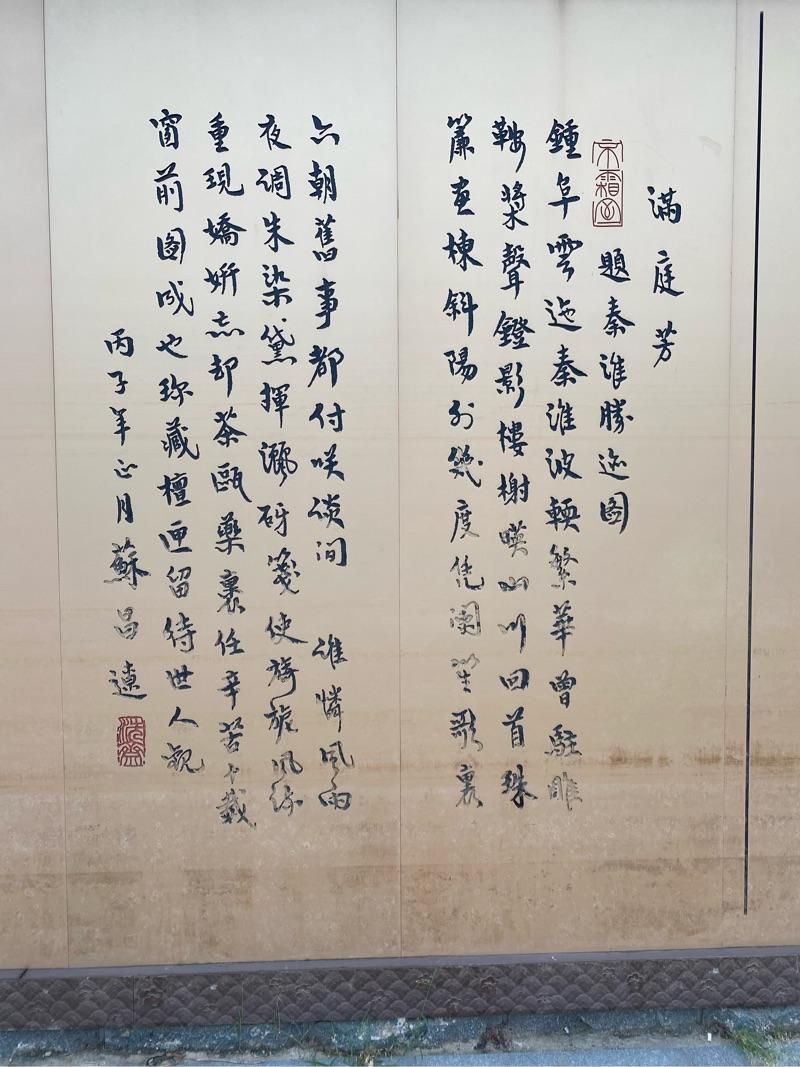 滿庭芳
題秦淮勝迹图
鍾阜雲迤秦淮波輭繁華曾駐雕
鞍槳聲鐙影樓榭暎山川回首珠
簾畫棟斜陽外幾度凭闌笙歌裏
六朝舊事都付咲談間 誰憐風雨
夜調朱染黛揮灑砑箋使旖旎風流
重現嬌妍忘却茶甌藥裹任辛苦十載
窗前图成也珍藏檀匣留待世人觀
丙子年正月蘇昌遼